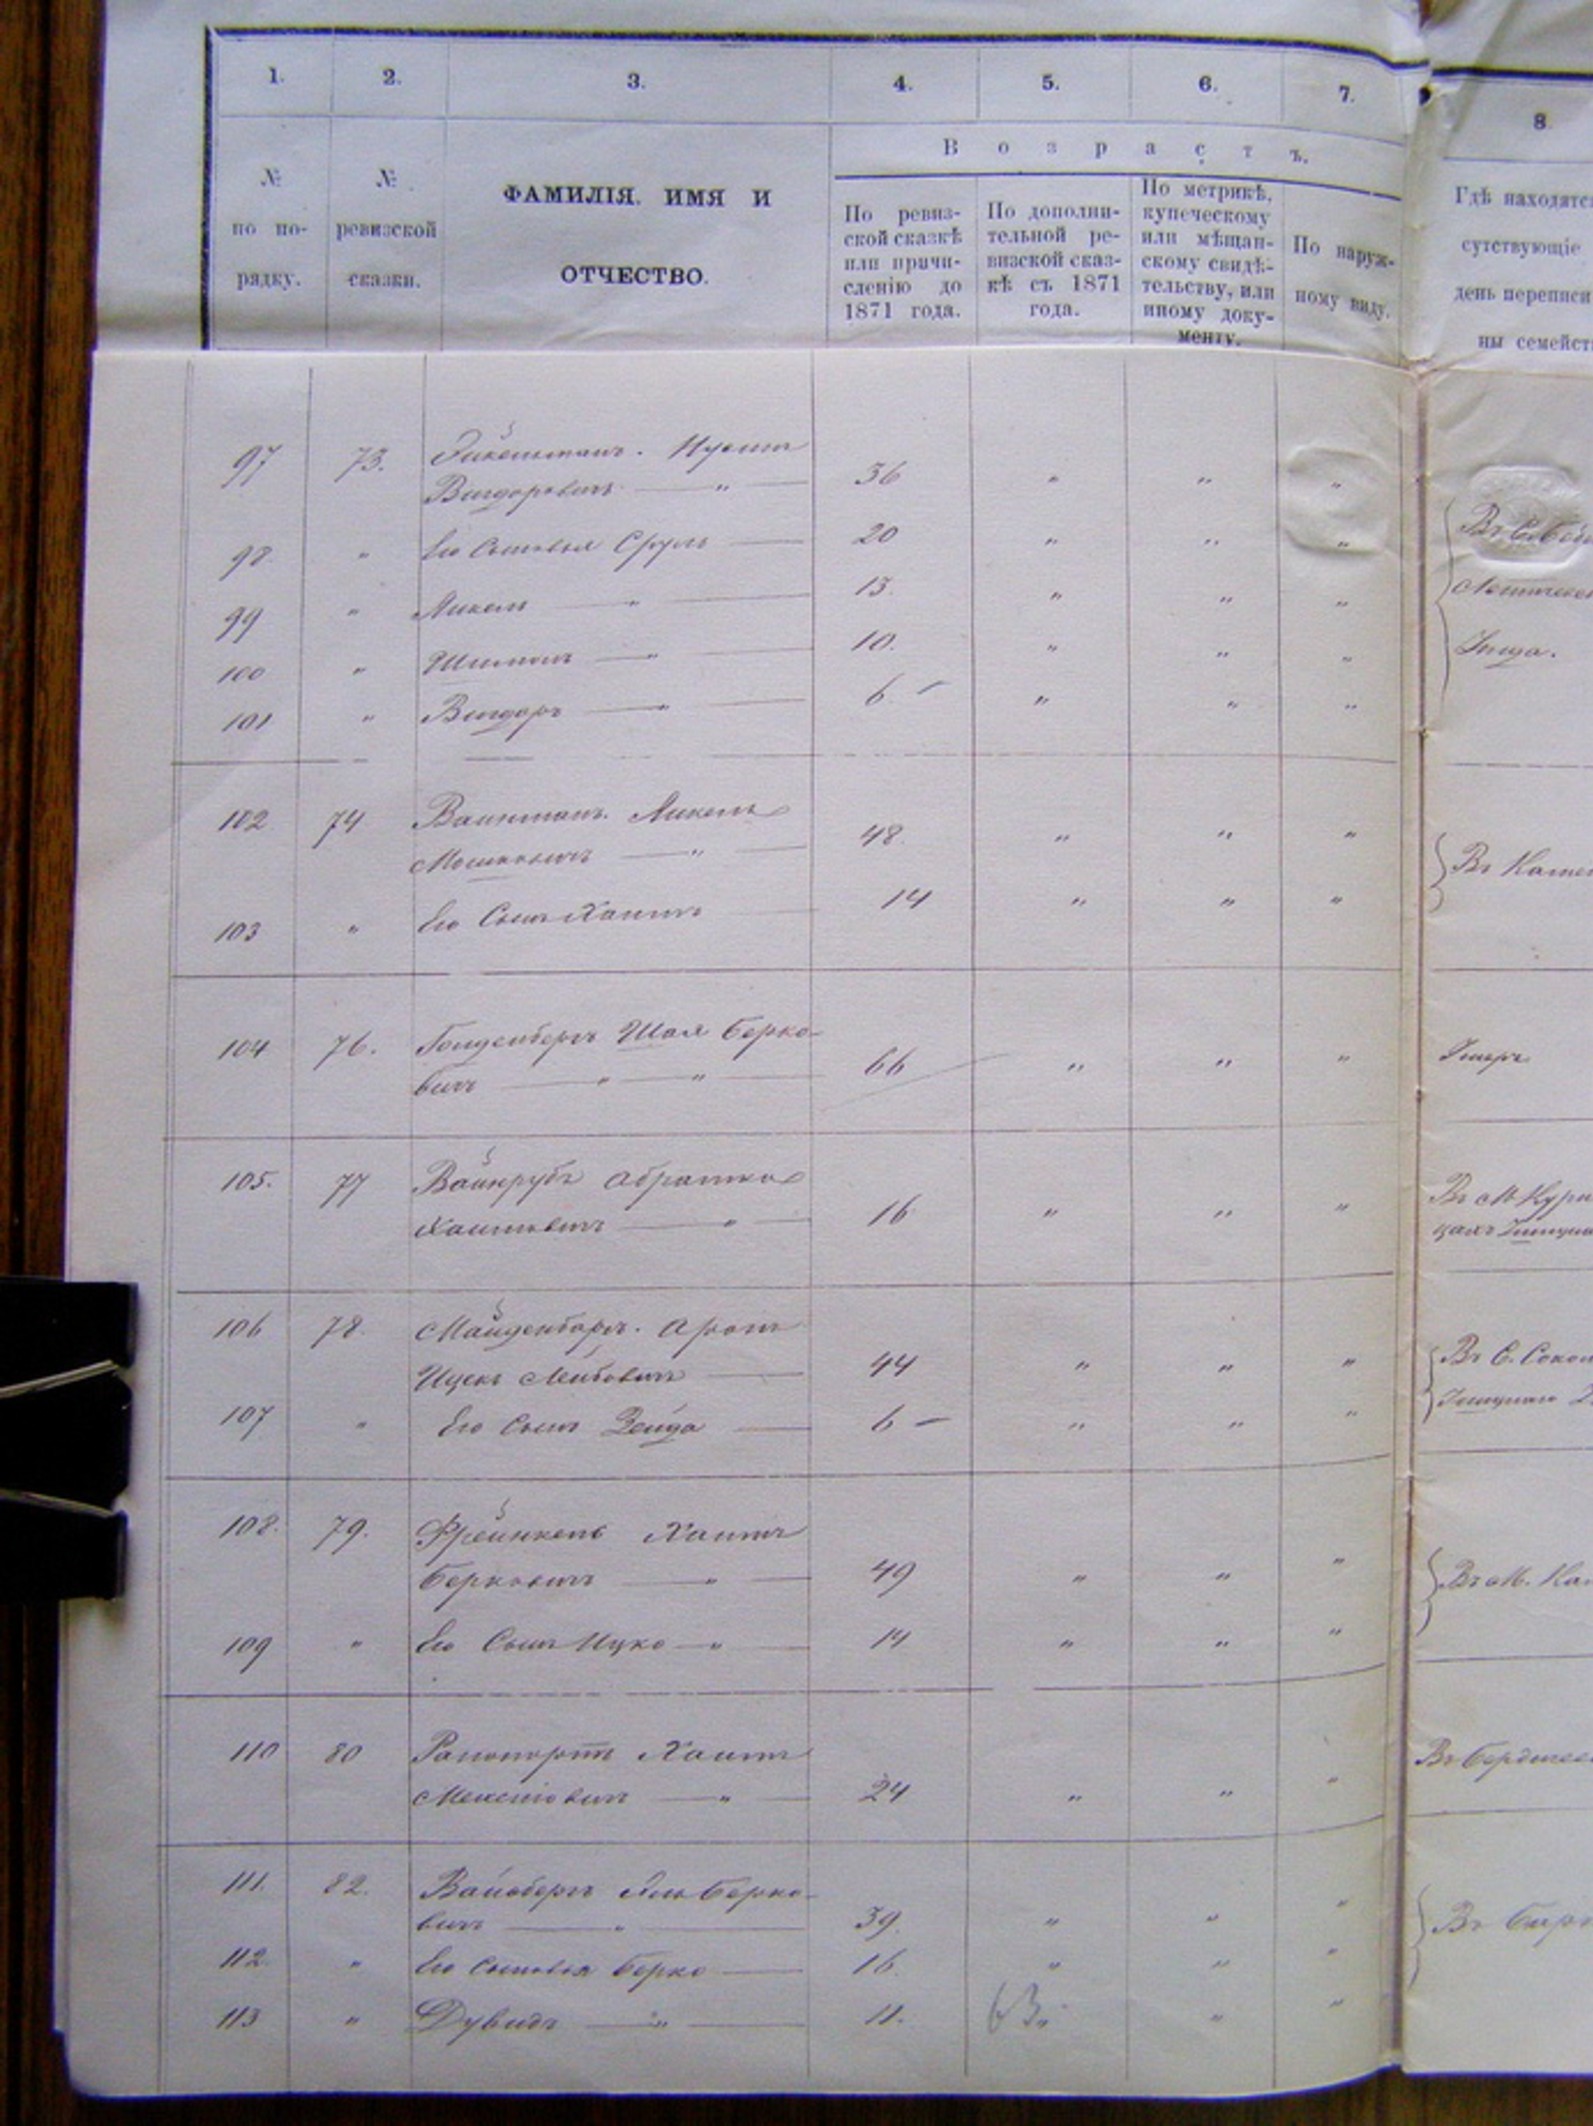 1. 2. 3. 4. 5. 6. 7. 8
Возрастъ.
№ по по-рядку.
№ ревизской сказки.
ФАМИЛІЯ. ИМЯ И
ОТЧЕСТВО.
По ревиз-
ской сказкѣ
или причи-
сленію до
1871 года.
По дополни-
тельной ре-
визской сказ-
кѣ съ 1871
года.
По метрикѣ,
купеческому
или мѣщан-
скому свидѣ-
тельству, или
иному доку-
менту.
По наруж-
ному виду.
Гдѣ находятся
сутствующіе
день переписи
ны семейств
97 73. Эйхельманъ. Нусим
Вигдоровичъ — " — 36 " " "
98 " Его Сыновья Сруль — 20 " " "
99 " Михель " — 13. " " "
100 " Шимонъ — " — 10. " " "
101 " Вигдоръ — " — 6 — " " "
Въ С.
Упзда.
102 74 Ваинманъ. Михель
Мошковичъ — " — 48. " " "
103 " Его Сынъ Хаимъ 14 " " "
Въ Камен
104 76. Голденбергъ Шая Берко-
вичъ — " — " 66 " " "
Умеръ
105. 77 Вайнрубъ Абрамко
Хаимовичъ — " — 16 " " "
Въ М. Кури
цахъ
106 78. Майденбергъ. Аронъ
Ицекъ Лейбовичъ — 44 " " "
107 " Его Сынъ Зейда — 6 — " " "
Въ С. Сокол
108. 79. Френкель Хаимъ
Берковичъ — " — 49 " " "
109 " Его Сынъ Ицко — " — 14 " " "
Въ М. Ка
110 80 Рапопортъ Хаимъ
вичъ — " — 24 " " "
Въ Бердичев
111. 82. Вайсбергъ Берко-
вичъ — " — 39. " " "
112. " Его Сыновья Берко — 16. " " "
113 " Дувидъ — " — 11. " " "
63